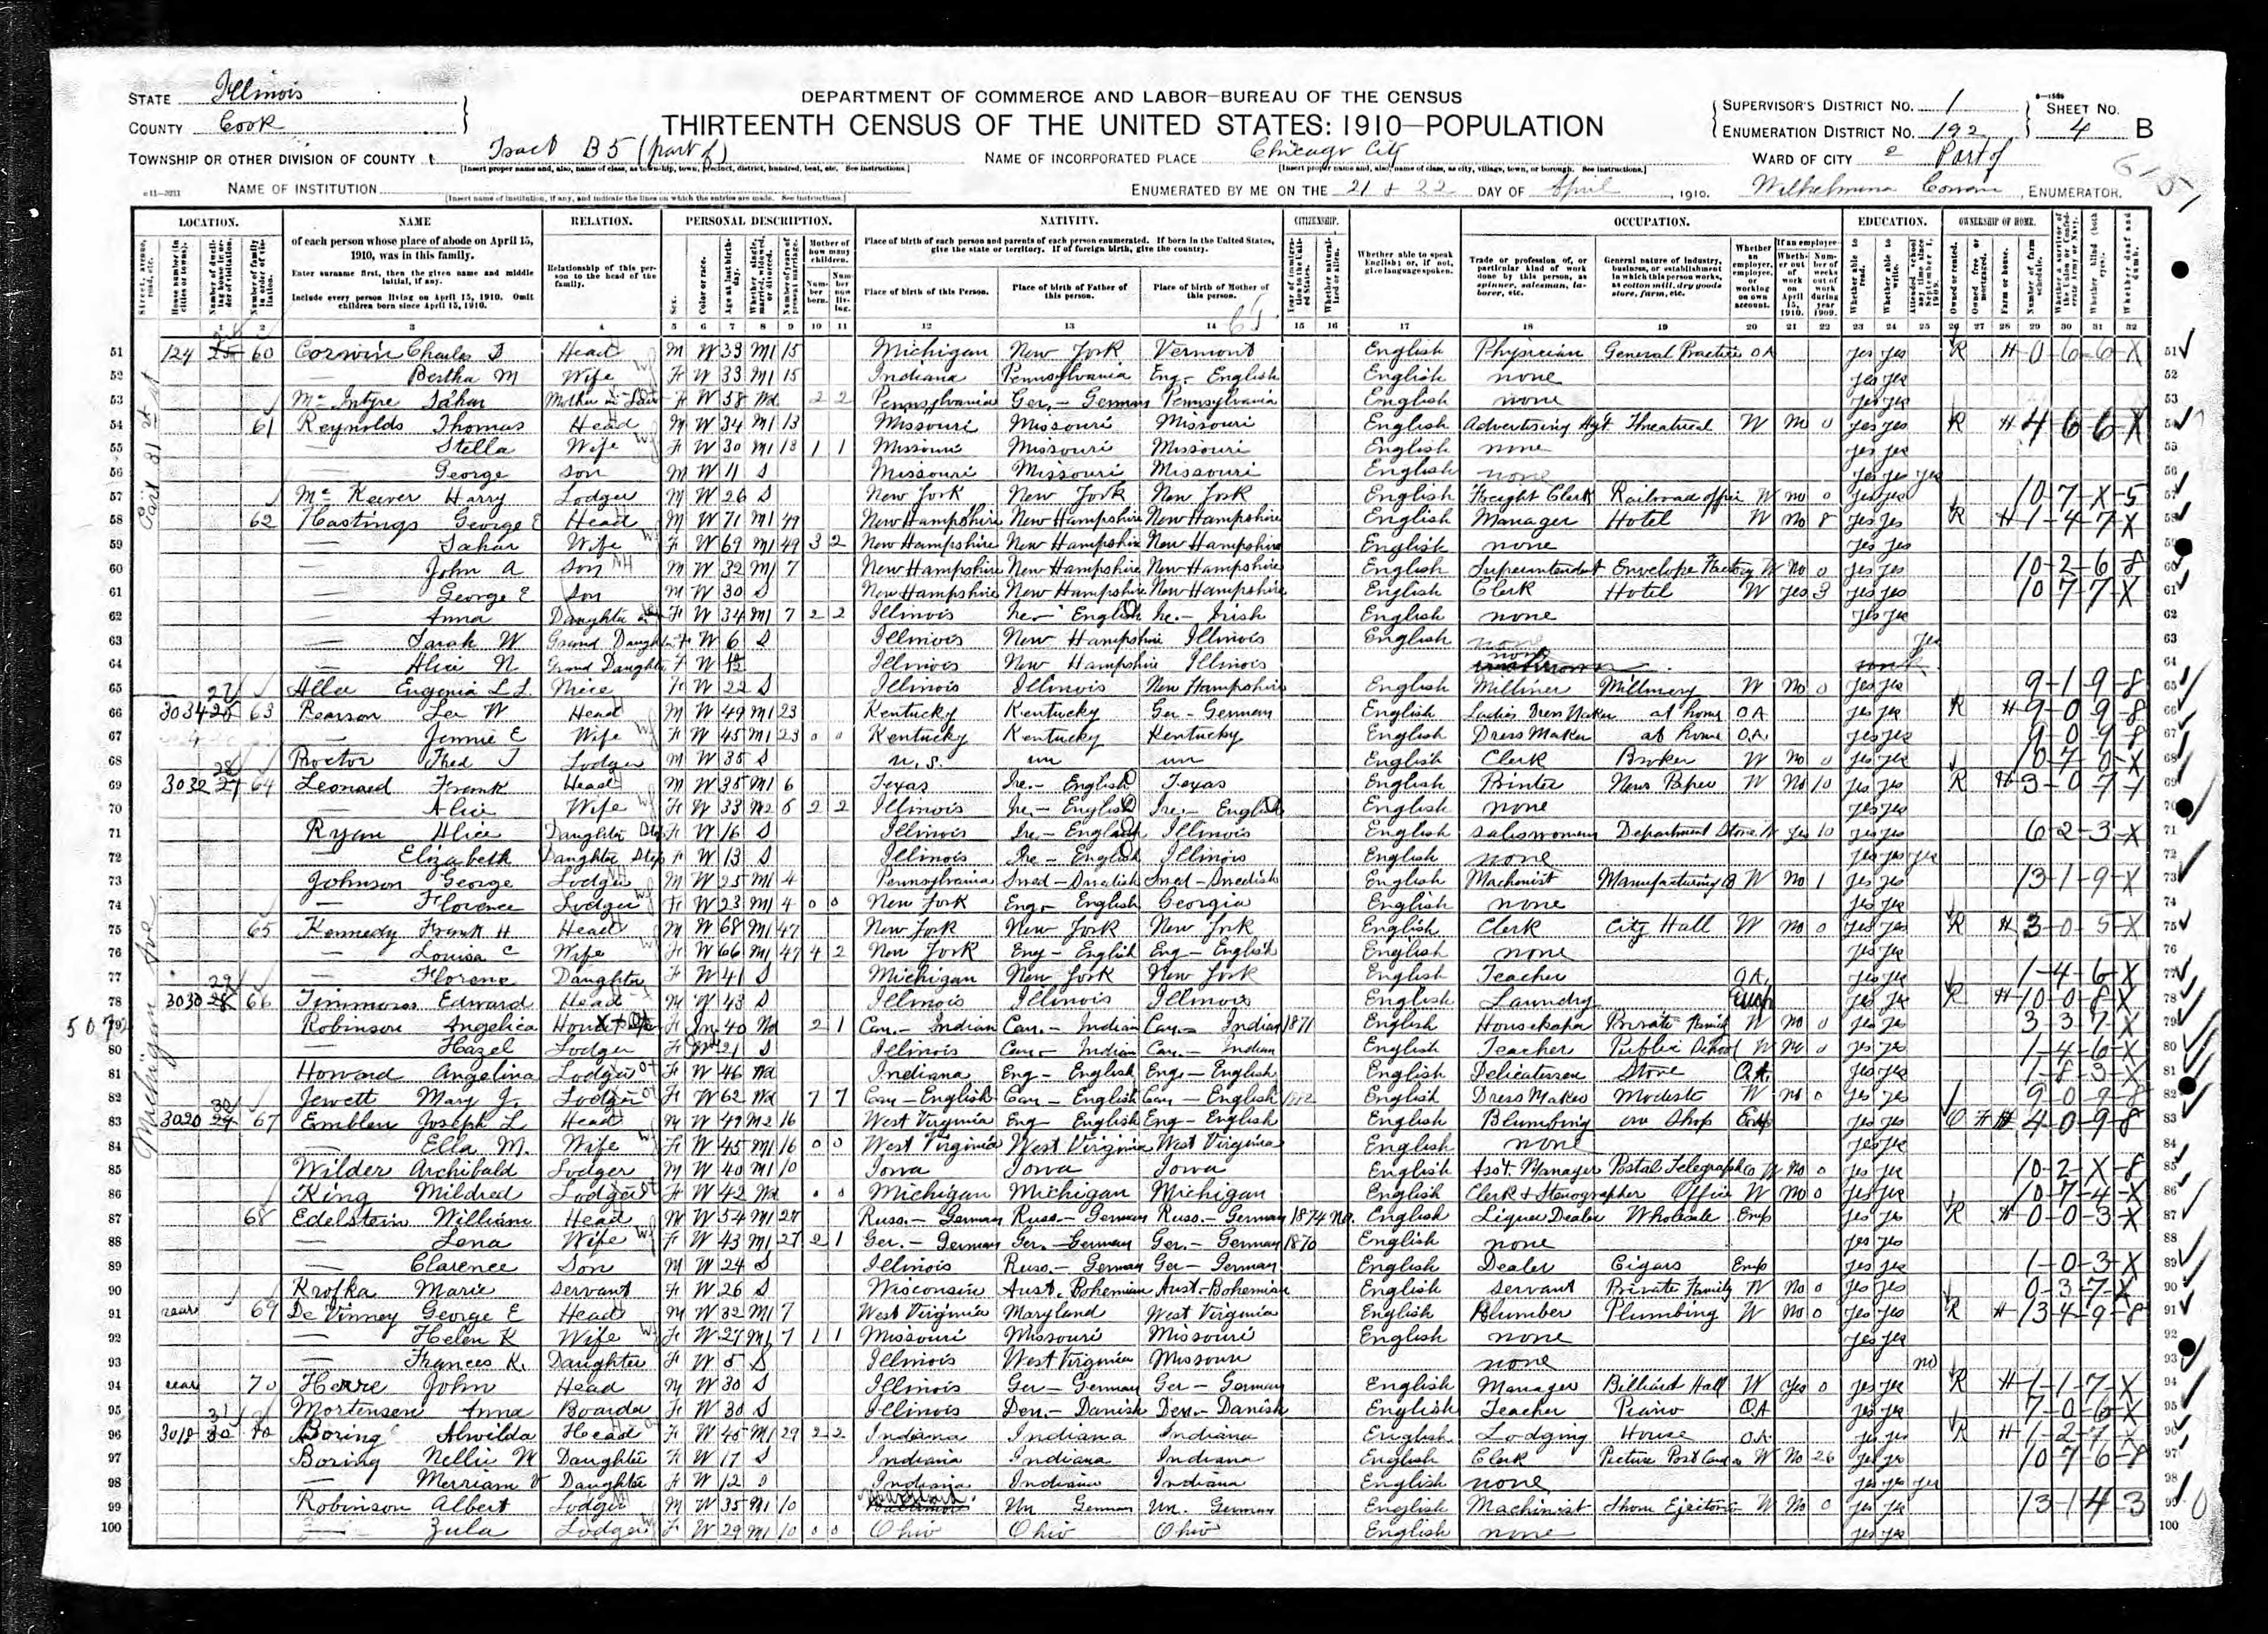 STATE Illinois
COUNTY Cook
TOWNSHIP OR OTHER DIVISION OF COUNTY Tract B5 (part of)
NAME OF INSTITUTION
DEPARTMENT OF COMMERCE AND LABOR—BUREAU OF THE CENSUS
THIRTEENTH CENSUS OF THE UNITED STATES: 1910—POPULATION
NAME OF INCORPORATED PLACE Chicago City
ENUMERATED BY ME ON THE 21 + 22 DAY OF April, 1910. Wilhelmina, ENUMERATOR.
SUPERVISOR'S DISTRICT NO. 1
ENUMERATION DISTRICT NO. 192
SHEET NO. 4 B
WARD OF CITY 2 Part of
LOCATION. NAME RELATION. PERSONAL DESCRIPTION. NATIVITY. CITIZENSHIP. OCCUPATION. EDUCATION. OWNERSHIP OF HOME.
of each person whose place of abode on April 15, 1910, was in this family.
Enter surname first, then the given name and middle initial, if any.
Include every person living on April 15, 1910. Omit children born since April 15, 1910.
Relationship of this person to the head of the family.
Place of birth of each person and parents of each person enumerated. If born in the United States, give the state or territory. If of foreign birth, give the country.
Place of birth of this Person. Place of birth of Father of this person. Place of birth of Mother of this person.
Whether able to speak English; or, if not, give language spoken.
Trade or profession of, or particular kind of work done by this person, as spinner, salesman, laborer, etc.
General nature of industry, business, or establishment in which this person works, as cotton mill, dry goods store, farm, etc.
East 31st St
Michigan Ave
51 124 60 Corwin Charles Head M W 33 M1 15 Michigan New York Vermont English Physician General Practice OA yes yes R H 0-6-6-X 51
52 Bertha M Wife F W 33 M1 15 Indiana Pennsylvania Eng - English English none yes yes 52
53 McIntyre Sahar Mother in Law F W 58 Wd 2 2 Pennsylvania Ger. - German Pennsylvania English none yes yes 53
54 61 Reynolds Thomas Head M W 34 M1 13 Missouri Missouri Missouri English Advertising Agt Theatrical W No 0 yes yes R H 4-6-6-X
55 Stella Wife F W 30 M1 13 1 1 Missouri Missouri Missouri English none yes yes 55
56 George Son M W 11 S Missouri Missouri Missouri English none yes yes yes 56
57 McKeever Harry Lodger M W 26 S New York New York New York English Freight Clerk Railroad office W no 0 yes yes 10-7-X-5 57
58 62 Hastings George E Head M W 71 M1 49 New Hampshire New Hampshire New Hampshire English Manager Hotel W No 8 yes yes R H 1-4-7-X 58
59 Sahar Wife F W 69 M1 49 3 2 New Hampshire New Hampshire New Hampshire English none yes yes 59
60 John A Son M W 32 M1 7 New Hampshire New Hampshire New Hampshire English Superintendent Envelope Factory W No 0 yes yes 10-2-6-8 60
61 George E Son M W 30 S New Hampshire New Hampshire New Hampshire English Clerk Hotel W yes 3 yes yes 10-7-7-X 61
62 Anna Daughter in F W 34 M1 7 2 2 Illinois Ire - English Ire. - Irish English none yes yes 62
63 Sarah W Grand Daughter F W 6 S Illinois New Hampshire Illinois English none yes 63
64 Alice N Grand Daughter F W Illinois New Hampshire Illinois none 64
65 Eugenia L. Niece F W 22 S Illinois Illinois New Hampshire English Milliner Millinery W No 0 yes yes 9-1-9-8 65
66 3034 27 63 Pearson Lee W Head M W 49 M1 23 Kentucky Kentucky Ger - German English Ladies Dress Maker at home OA yes yes R H 9-0-9-8 66
67 Jennie E Wife F W 45 M1 23 0 0 Kentucky Kentucky Kentucky English Dress Maker at home O.A. yes yes 9-0-9-8 67
68 Proctor Fred J Lodger M W 35 S U.S. un un English Clerk Broker W No 0 yes yes 10-7-0-X 68
69 3032 28 64 Leonard Frank Head M W 35 M1 6 Texas Ire. - English Texas English Printer News Paper W No 10 yes yes R H 3-0-7-1 69
70 Alice Wife F W 33 M2 6 2 2 Illinois Ire - English Ire - English English none yes yes 70
71 Ryan Alice Daughter Step F W 16 S Illinois Ire. - English Illinois English saleswoman Department Store W yes 10 yes yes 6-2-3-X 71
72 Elizabeth Daughter Step F W 13 S Illinois Ire - English Illinois English none yes yes yes 72
73 Johnson George Lodger M W 25 M1 4 Pennsylvania Swed - Swedish Swed - Swedish English Machinist Manufacturing Co W No 1 yes yes 13-1-9-X 73
74 Florence Lodger F W 23 M1 4 0 0 New York Eng - English Georgia English none yes yes 74
75 65 Kennedy Frank H Head M W 68 M1 47 New York New York New York English Clerk City Hall W No 0 yes yes R H 3-0-5-X 75
76 Louisa C Wife F W 66 M1 47 4 2 New York Eng - English Eng - English English none yes yes 76
77 Florence Daughter F W 41 S Michigan New York New York English Teacher O.A. yes yes 1-4-6-X 77
78 3030 29 66 Timmons Edward Head M W 43 S Illinois Illinois Illinois English Laundry Emp yes yes R H 10-0-8-X 78
79 Robinson Angelica F In 40 Wd 2 1 Can. - Indian Can. - Indian Can. - Indian 1871 English Housekeeper Private Family W No 0 yes yes 3-3-7-X 79
80 Hazel Lodger F 21 S Illinois Can - Indian Can. - Indian English Teacher Public School W No 0 yes yes 1-4-6-X 80
81 Howard Angelina Lodger F W 46 Wd Indiana Eng - English Eng - English English Delicatessen Store O.A. yes yes 1-8-3-X 81
82 Jewett Mary J. Lodger F W 62 Wd 7 7 Can - English Can - English Can - English English Dress Maker Modiste W no 0 yes yes 9-0-9-8 82
83 3020 30 67 Emblen Joseph L Head M W 49 M2 16 West Virginia Eng - English Eng - English English Plumbing own Shop Emp yes yes O F H 4-0-9-8 83
84 Ella M. Wife F W 45 M1 16 0 0 West Virginia West Virginia West Virginia English none yes yes 84
85 Wilder Archibald Lodger M W 40 M1 10 Iowa Iowa Iowa English Ass't. Manager Postal Telegraph Co W No 0 yes yes 10-2-X-8 85
86 King Mildred Lodger F W 42 Wd 0 0 Michigan Michigan Michigan English Clerk + Stenographer Office W No 0 yes yes 10-7-4-X 86
87 68 Edelstein William Head M W 54 M1 27 Russ. - German Russ. - German Russ. - German 1874 Na. English Liquor Dealer Wholesale Emp yes yes R H 0-0-3-X 87
88 Lena Wife F W 43 M1 27 2 1 Ger. - German Ger. - German Ger. - German 1870 English none yes yes 88
89 Clarence Son M W 24 S Illinois Russ. - German Ger - German English Dealer Cigars Emp yes yes 1-0-3-X 89
90 Krofka Marie Servant F W 26 S Wisconsin Aust. Bohemian Aust. - Bohemian English servant Private Family W No 0 yes yes 0-3-7-X 90
91 rear 69 De Vinney George E Head M W 32 M1 7 West Virginia Maryland West Virginia English Plumber Plumbing W No 0 yes yes R H 13-4-9-8 91
92 Helen K Wife F W 27 M1 7 1 1 Missouri Missouri Missouri English none yes yes 92
93 Frances K. Daughter F W 5 S Illinois West Virginia Missouri none no 93
94 rear 70 John Head M W 30 S Illinois Ger - German Ger - German English Manager Billiard Hall W yes 0 yes yes R H 1-1-7-X 94
95 Mortensen Anna Boarder F W 30 S Illinois Den. - Danish Den. - Danish English Teacher Piano O.A yes yes 7-0-6-X 95
96 3018 31 Boring Alwilda Head F W 45 M1 29 2 2 Indiana Indiana Indiana English Lodging House O.A. yes yes R H 1-2-7-X 96
97 Boring Nellie M Daughter F W 17 S Indiana Indiana Indiana English Clerk Picture Post Card W No 26 yes yes 10-7-6-8 97
98 Merriam V Daughter F W 12 S Indiana Indiana Indiana English none yes yes yes 98
99 Robinson Albert Lodger M W 35 M1 10 Un German Un. German English Machinist W No 0 yes yes 13-1-4-3 99
100 Zula Lodger F W 29 M1 10 0 0 Ohio Ohio Ohio English none yes yes 100